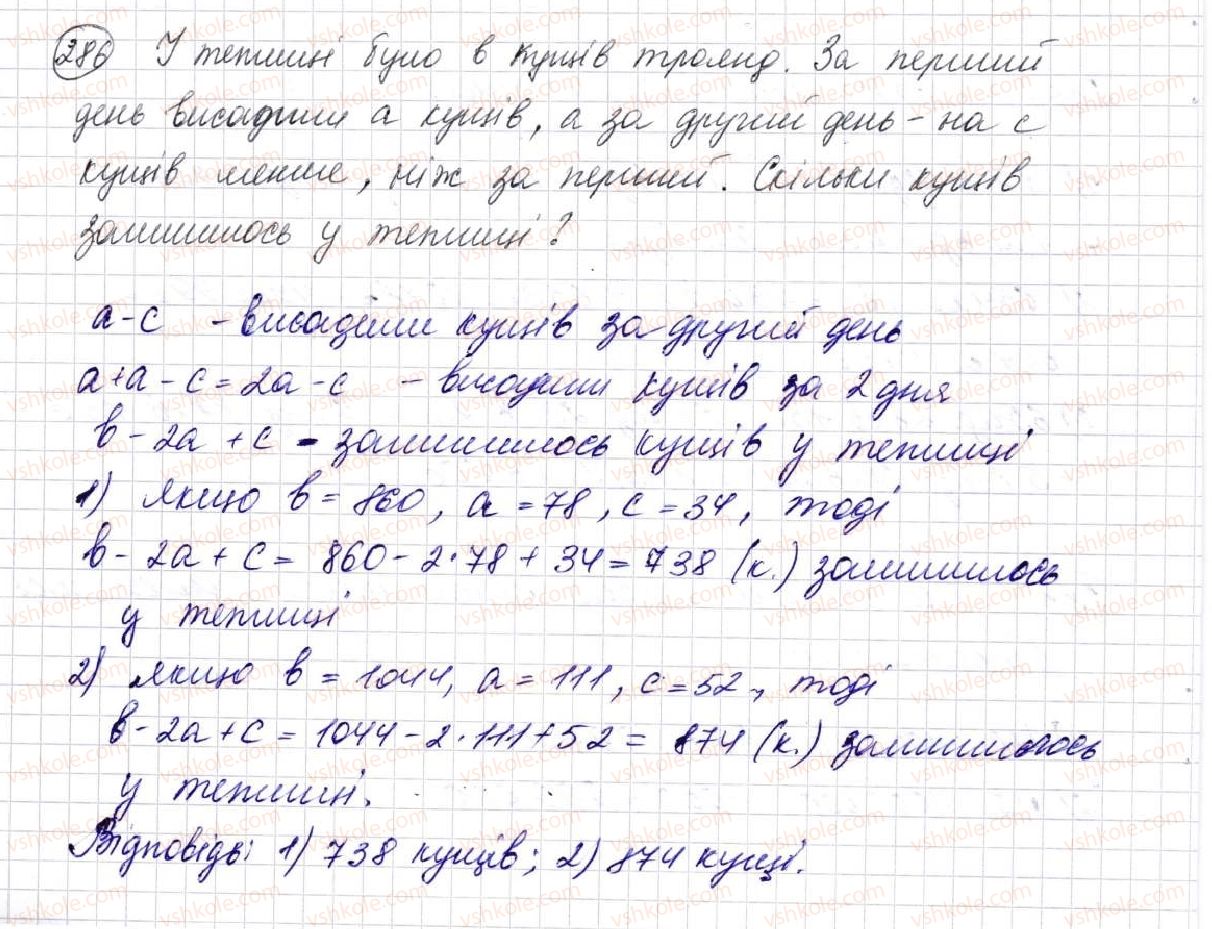 286 У теплиці було в кущів троянд. За перший
день висадили а кущів, а за другий день - на с
кущів менше, ніж за перший. Скільки кущів
залишилось у теплиці?
а-с - висадили кущів за другий день
а+а-с=2а-с - висадили кущів за 2 дня
в-2а+с - залишилось кущів у теплиці
1) якщо в=860, а=78, с=34, тоді
в-2а+с=860-2·78+34=738 (к.) залишилось
у теплиці
2) якщо в=1044, а=111, с=52, тоді
в-2а+с=1044-2·111+52=874 (к.) залишилось
у теплиці.
Відповідь: 1) 738 кущів; 2) 874 кущі.